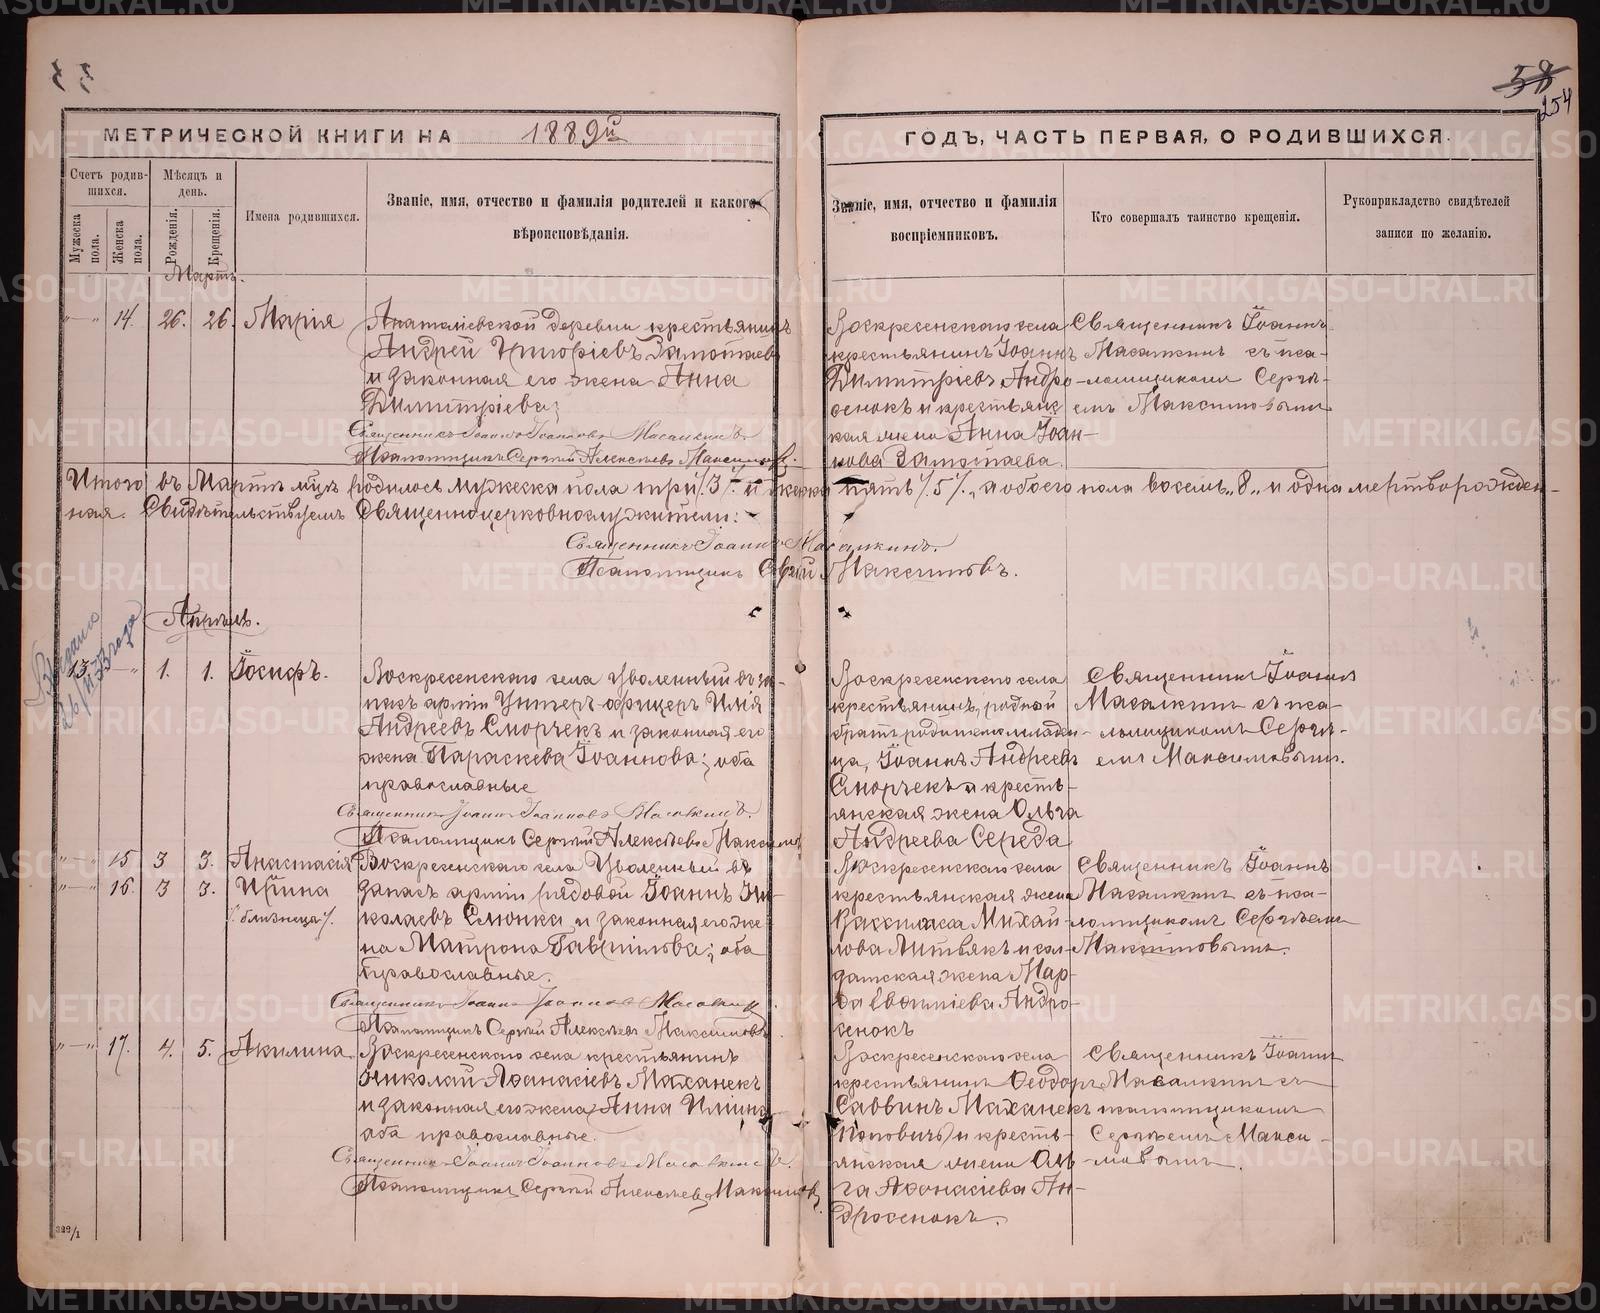 58
254
МЕТРИЧЕСКОЙ КНИГИ НА 1889й
ГОДЪ, ЧАСТЬ ПЕРВАЯ, О РОДИВШИХСЯ.
Счетъ родив-
шихся.
Мѣсяцъ и
день.
Мужеска
пола.
Женска
пола.
Рожденія.
Крещенія.
Имена родившихся.
Званіе, имя, отчество и фамилія родителей и какого
вѣроисповѣданія.
Званіе, имя, отчество и фамилія
воспріемниковъ.
Кто совершалъ таинство крещенія.
Рукоприкладство свидѣтелей
записи по желанію.
Мартъ.
14. 26. 26. Марія
деревни крестьянинъ
Андрей Григоріевъ
и законная его жена Анна
Димитріева;
Священникъ Іоаннъ Іоанновъ
Псаломщикъ Сергѣй Алексѣевъ Максимовъ.
Воскресенскаго села
крестьянинъ Іоаннъ
Димитріевъ Андро-
сенокъ и крестьянс
кая жена Анна Іоан-
нова
Священникъ Іоаннъ
съ пса-
ломщикомъ Сергѣ-
емъ Максимовымъ
Итого въ Мартѣ м-цѣ родилось мужеска пола три /3/ и женска пять /5/, а обоего пола восемь „8" и одна мертворожден-
ная. Свидѣтельствуемъ Священноцерковнослужители:
Священникъ Іоаннъ
Псаломщикъ Сергѣй Максимовъ.
Апрѣль.
Выдано
13 1. 1. Іосифъ.
Воскресенскаго села Уволенный въ за-
пасъ арміи Унтеръ-офицеръ Илія
Андреевъ Сморчекъ и законная его
жена Параскева Іоаннова; оба
православные
Священникъ Іоаннъ Іоанновъ
Псаломщикъ Сергѣй Алексѣевъ Максимовъ
Воскресенскаго села
крестьянинъ, родной
братъ родителя младен-
ца, Іоаннъ Андреевъ
Сморчекъ и кресть-
янская жена Ольга
Андреева Середа
Священникъ Іоаннъ
съ пса-
ломщикомъ Сергѣ-
емъ Максимовымъ.
15 3 3. Анастасія
16. 3 3. Ирина
/близнецы/.
Воскресенскаго села Уволенный въ
запасъ арміи рядовой Іоаннъ Ни-
колаевъ Слюнка и законная его же-
на Матрона Гавріилова; оба
Православные.
Священникъ Іоаннъ Іоанновъ
Псаломщикъ Сергѣй Алексѣевъ Максимовъ
Воскресенскаго села
крестьянская жена
Васса Михай-
лова Литвякъ и сол-
датская жена Мар-
Андро-
сенокъ
Священникъ Іоаннъ
съ пса-
ломщикомъ Сергѣемъ
Максимовымъ.
17. 4. 5. Акилина
Воскресенскаго села крестьянинъ
Николай Аѳанасіевъ Маханекъ
и законная его жена Анна Иліина
оба православные.
Священникъ Іоаннъ Іоанновъ
Псаломщикъ Сергѣй Алексѣевъ Максимовъ
Воскресенскаго села
крестьянинъ Ѳеодоръ
Саввинъ Маханекъ
Поповичъ и кресть-
янская жена Оль-
га Аѳонасіева Ан-
дросенокъ.
Священникъ Іоаннъ
съ
псаломщикомъ
Сергѣемъ Макси-
мовымъ.
329/1